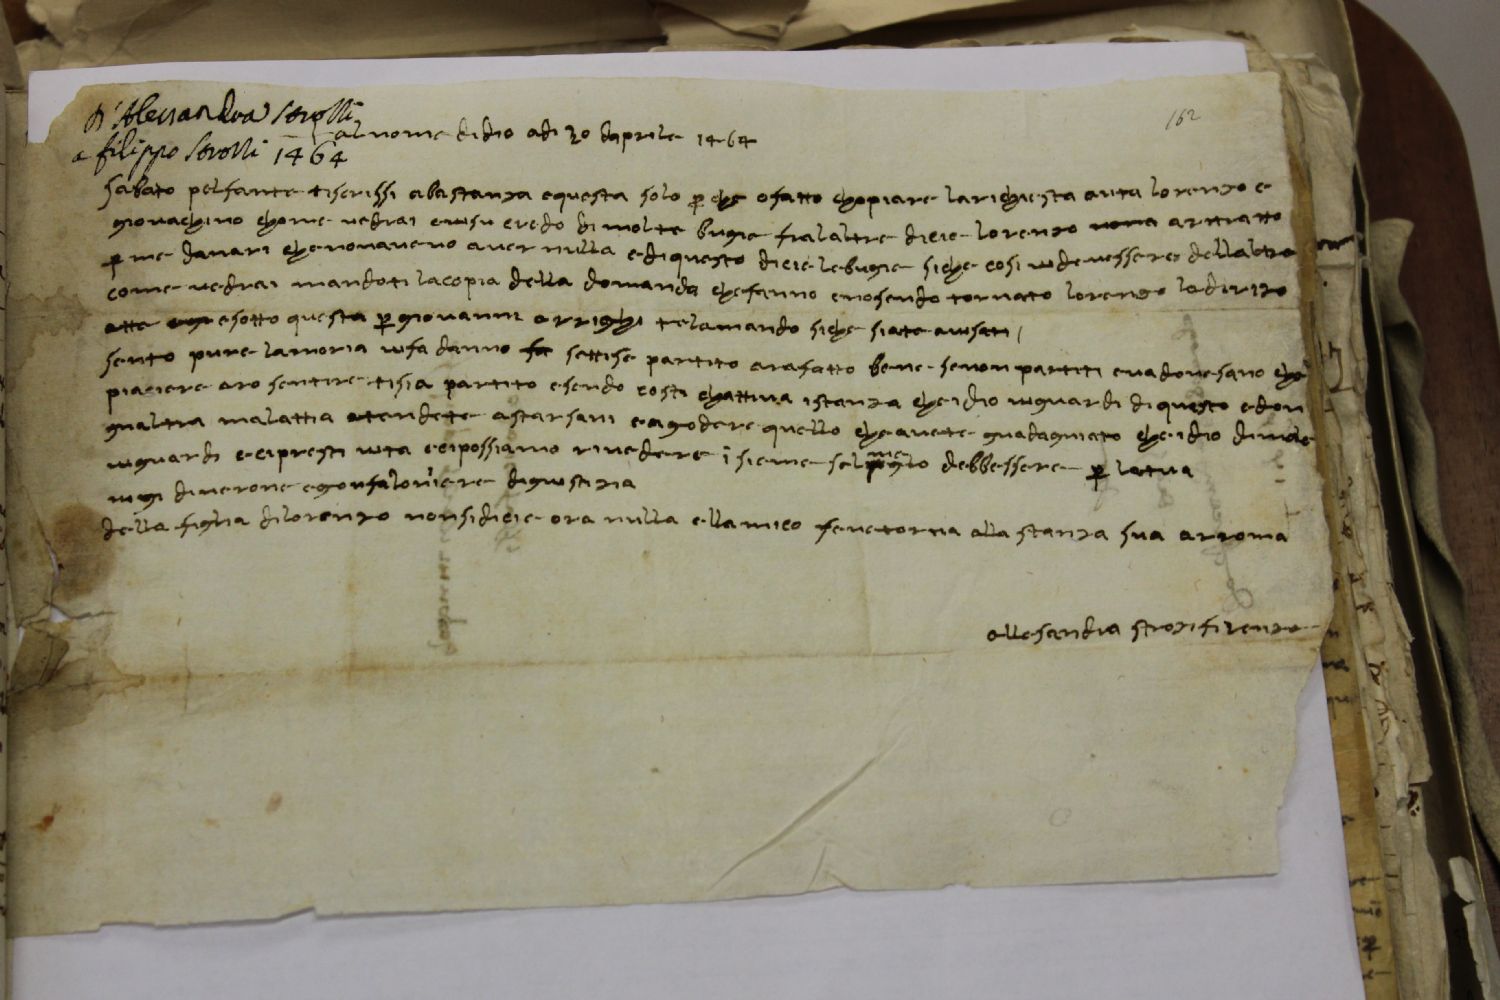 D'Alessandra Strozzi
a filippo Strozzi 1464
162
al nome didio adi 20 daprile 1464
Sabato pelfante tiscrissi abastanza equesta solo p che ofatto chopiare larichiesta auta lorenzo e
giovachino chome vedrai evisu credo di molte bugie fralaltre dicie lorenzo arttratto
p me danari chenonaveno aver nulla ediquesto dicie lebugie siche cosi vidевessere dellaltro
come vedrai mandoti lacopia della domanda chefanno enosendo tornato lorenzo ladirizo
esotto questa p giovanni arrighi telamando siche siate avisati
sento pure lamoria vifa danno settise partito arafatto bene senon partiti evadovesano che
piaciere aro sentire tisia partito esendo costi chattiva istanza cheidio viguardi diquesto edon
gnaltra malattia atendete astarsani eagodere quello cheavete guadagniato cheidio dimale
viguardi ecipresti vita ecipossiamo rivedere isieme me debbessere p latua
nigi dinerone egonfaloniere digiustizia
della figlia dilorenzo nonsidicie ora nulla ellamico senetorna alla stanza sua arroma
allesandra strozi firenze